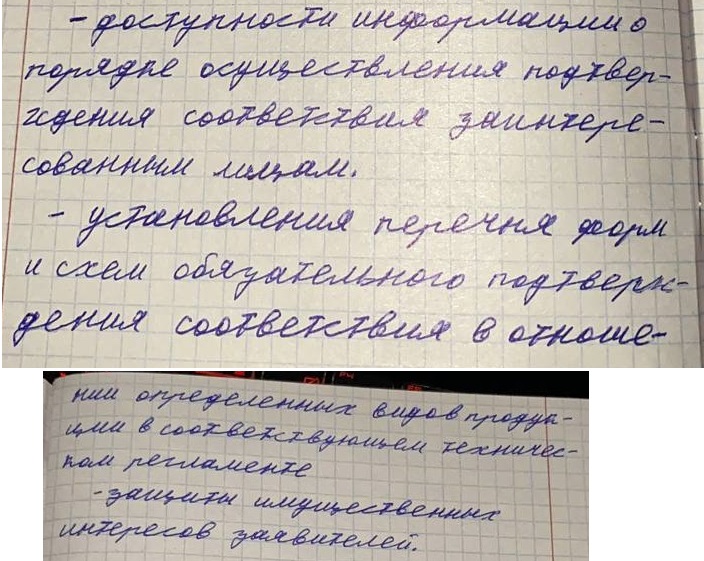 - доступности информации о
порядке осуществления подтвер-
ждения соответствия заинтере-
сованным лицам.
- установления перечня форм
и схем обязательного подтверж-
дения соответствия в отноше-
нии определенных видов продук-
ции в соответствующем техничес-
ком регламенте
- защиты имущественных
интересов заявителей.